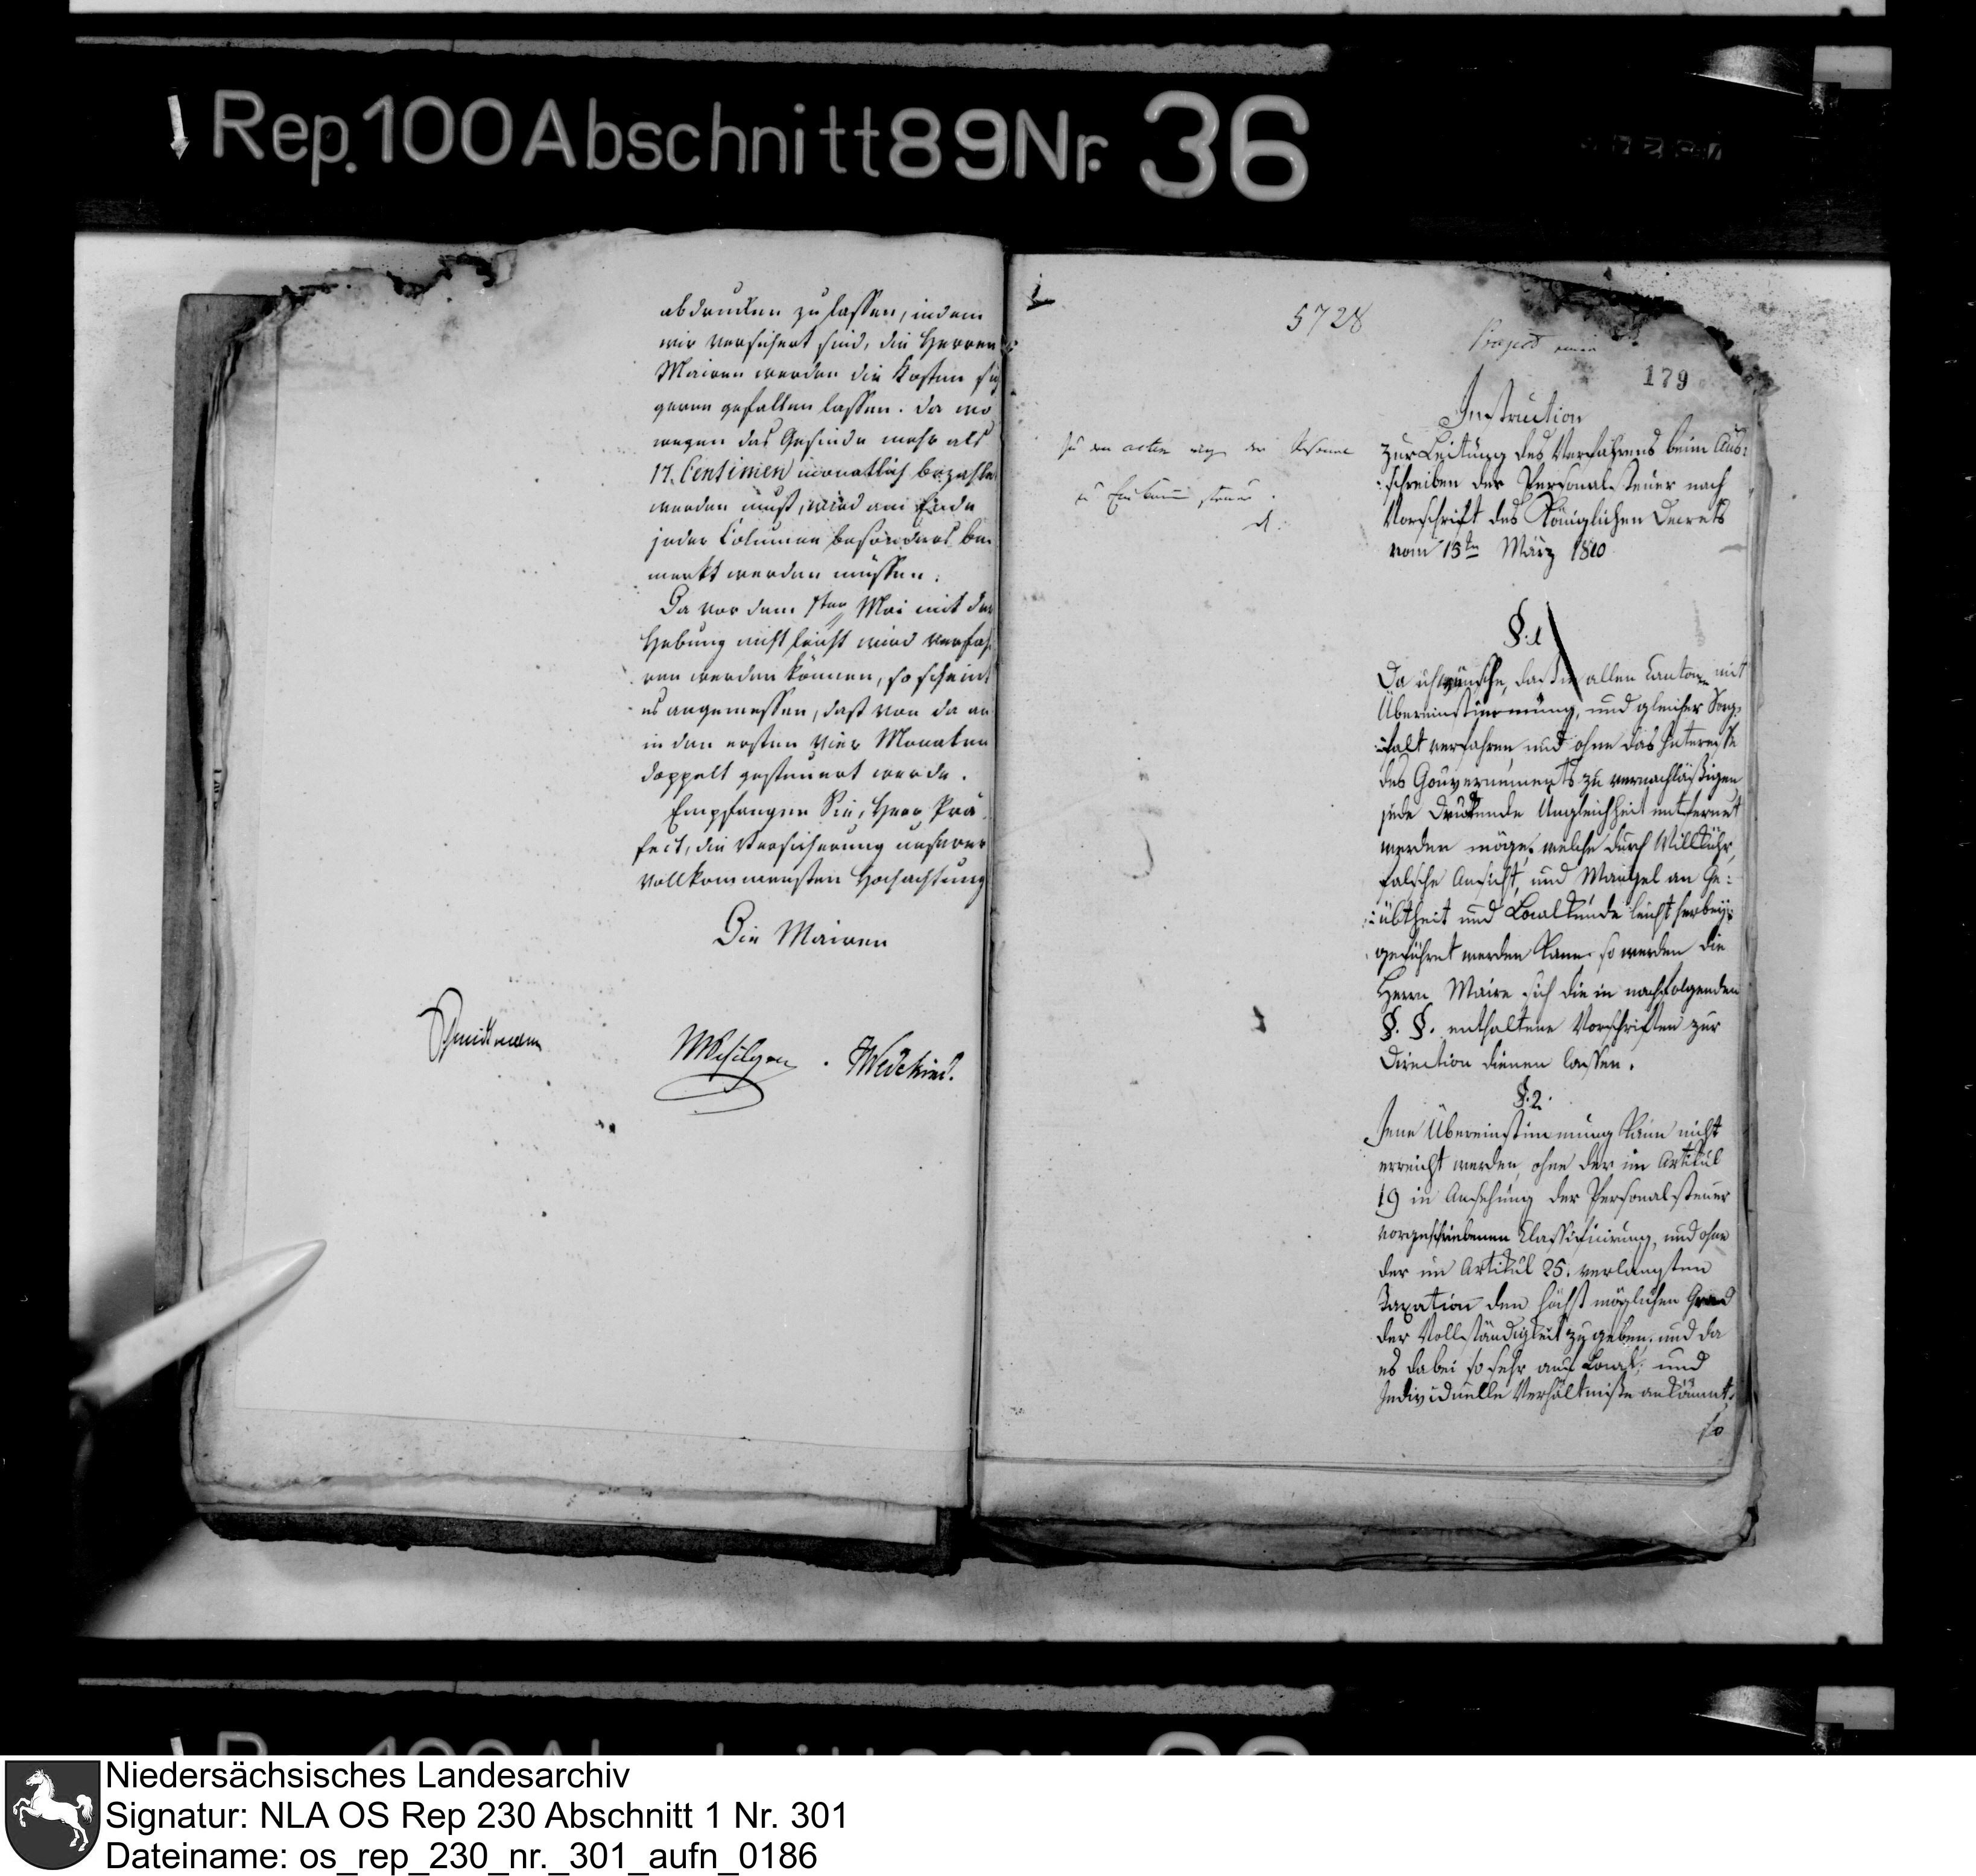 Rep. 100 Abschnitt 89 Nr. 36
abdrucken zu lassen, indem
wir versichert sind, die Herren
Mairen werden die Kosten sich
geren gefallen lassen. Da wo
wegen das Gesinde mehr als
17. Centimen monatlich bezahlt
werden muß, wird am Ende
jeder Columne besonders be
merkt werden müssen.
Da vor dem 1ten Mai mit der
Hebung nicht leicht wird verfah
ren werden können, so scheint
es angemessen, daß von da an
in den ersten vier Monaten
doppelt gesteuert werde.
Empfangen Sie, Herr Prä
fect, die Versicherung unserer
vollkommensten Hochachtung
Die Mairen
Wedekind.
5728
Project einer
179
Instruction
zur Leitung des Verfahrens beim Aus:
:schreiben der Personal-Steuer nach
Vorschrift des Königlichen Decrets
vom 15tn März 1810
zu den acten weg. der Personal
d.
§. 1
Da ich wünsche, daß in allen Cantonen mit
Übereinstimmung, und gleicher Sorg:
:falt verfahren und ohne das Interesse
des Gouvernements zu vernachläßigen
jede druckende Ungleichheit entfernet
werden möge, welche durch Willkühr,
falsche Ansicht, und Mangel an Ge:
:übtheit und Localkunde leicht herbey:
geführet werden kann. so werden die
Herrn Maire sich die in nachfolgenden
§. §. enthaltene Vorschriften zur
Direction dienen lassen.
§. 2.
Jene Übereinstimmung kann nicht
erreicht werden, ohne der im Artikul
19 in Ansehung der Personalsteuer
vorgeschriebenen Classificirung, und ohne
der im Artikul 25. verlangten
Taxation den höchst möglichen Grad
der Vollständigkeit zu geben, und da
es dabei so sehr auf Local: und
Individuelle Verhältniße ankömmt,
so
Niedersächsisches Landesarchiv
Signatur: NLA OS Rep 230 Abschnitt 1 Nr. 301
Dateiname: os_rep_230_nr._301_aufn_0186